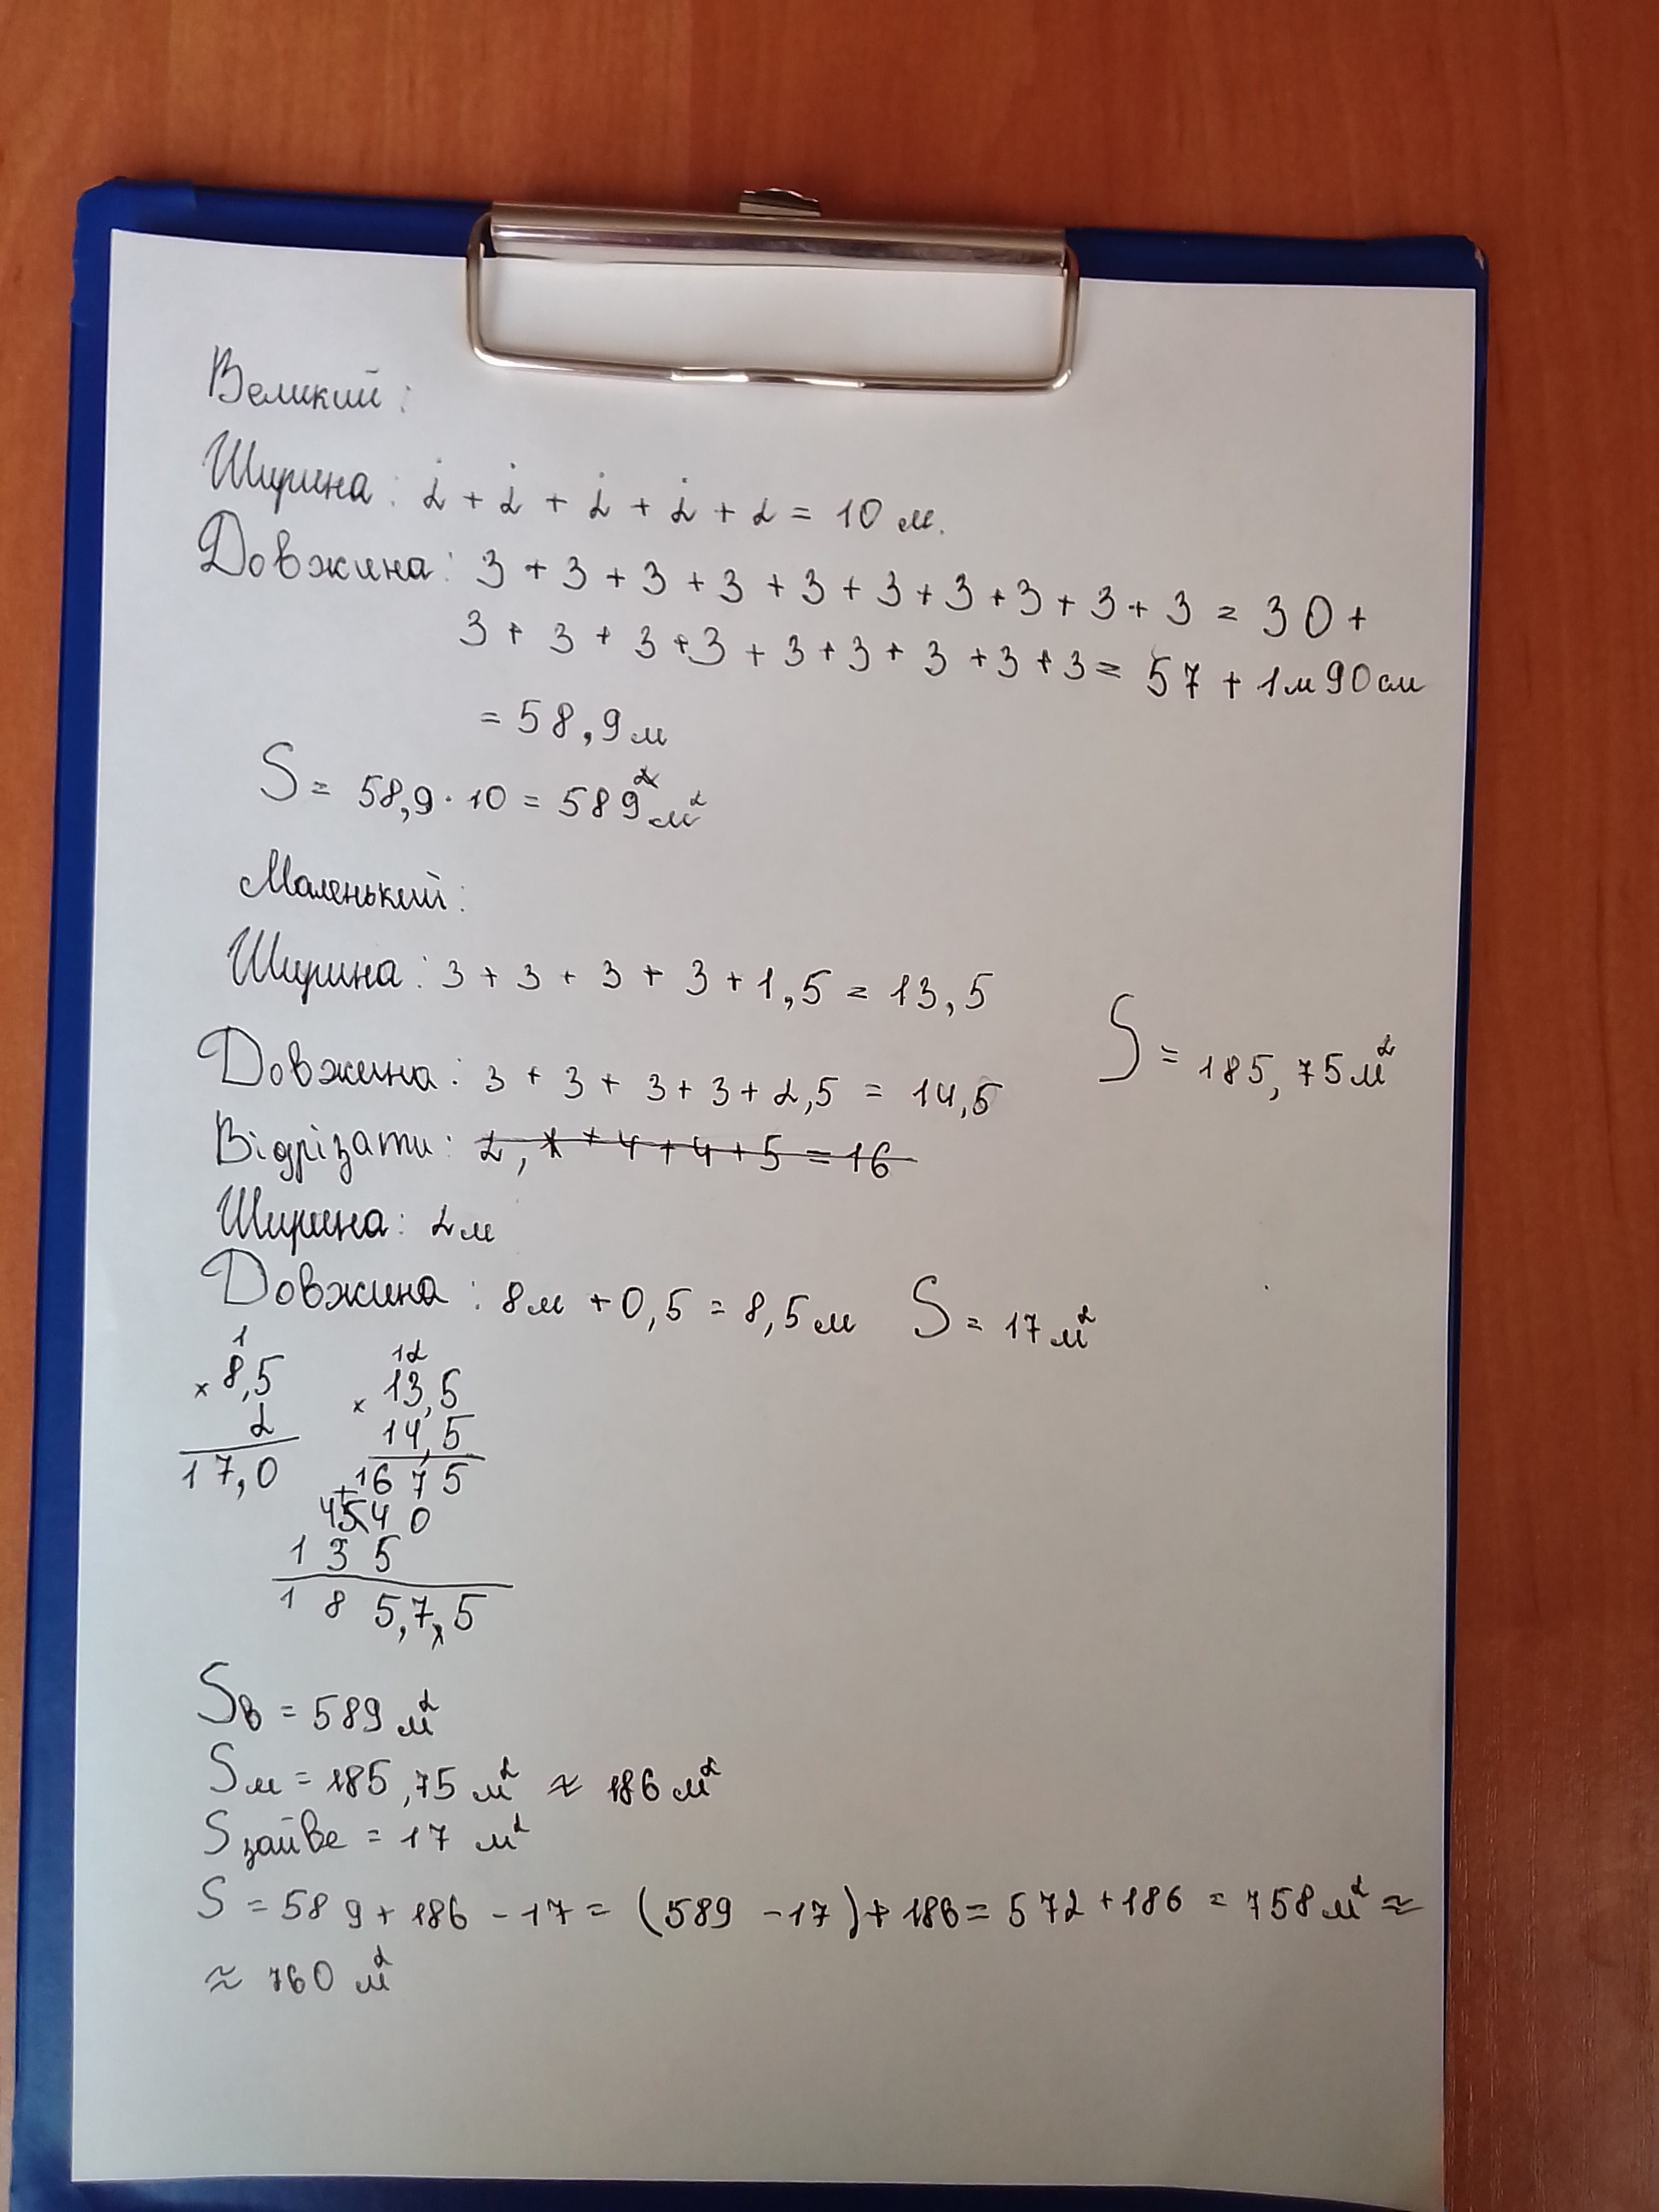 Великий:
Ширина: 2 + 2 + 2 + 2 + 2 = 10 м.
Довжина: 3 + 3 + 3 + 3 + 3 + 3 + 3 + 3 + 3 + 3 = 30 +
3 + 3 + 3 + 3 + 3 + 3 + 3 + 3 + 3 = 57 + 1м 90 см
= 58,9 м
S = 58,9 · 10 = 589 м²
Маленький:
Ширина: 3 + 3 + 3 + 3 + 1,5 = 13,5
S = 185,75 м²
Довжина: 3 + 3 + 3 + 3 + 2,5 = 14,5
Відрізати:
Ширина: 2 м
Довжина: 8 м + 0,5 = 8,5 м S = 17 м²
1 12
× 8,5 × 13,5
2 14,5
17,0 + 1675
540
1 3 5
1 8 5,7 5
Sв = 589 м²
Sм = 185,75 м² ≈ 186 м²
Sзайве = 17 м²
S = 589 + 186 - 17 = (589 - 17) + 186 = 572 + 186 = 758 м² ≈
≈ 760 м²